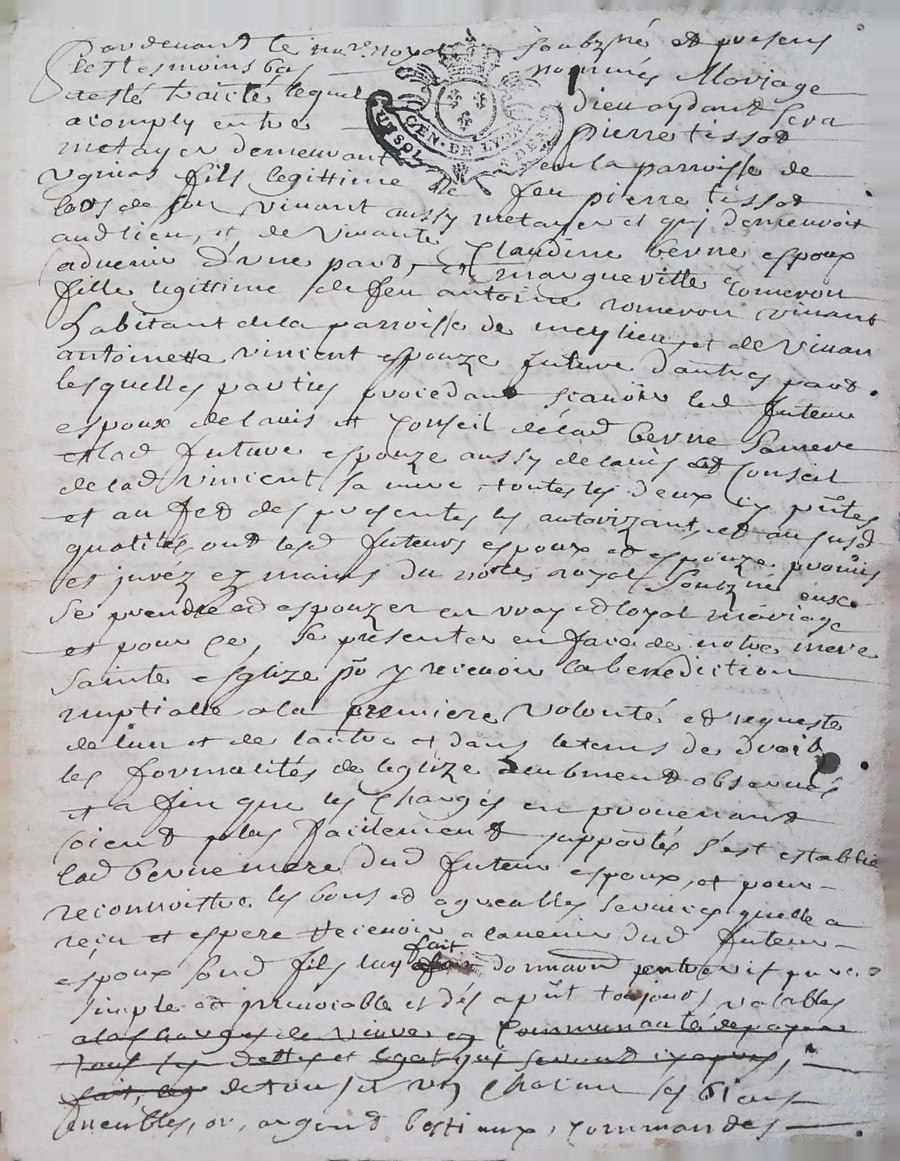 Pardevant le nore royal soubzné et presens
les tesmoins bas nommés Mariage
a esté traicté lequel Dieu aydant sera
acomply entre pierre tissot
metayer demeurant en la parroisse de
fils legittime de feu pierre tissot
lors de son vivant aussy metayer et quj demeuroit
audlieu, et de vivante Claudine berne espoux
advenir d'une part, et margueritte romeron
fille legittime de feu antoine romeron vivant
habitant de la parroisse de meylieu et de vivan
antoinette vincent espouze future d'autres part
lesquelles parties procedant scavoir led futeur
espoux de lavis et Conseil de lad berne sa mere
et lad future espouze aussy de lavis et Conseil
de lad vincent sa mere toutes les deux icy pntes
et au fet des presentes les autorizant, et aususd
qualités ont lesd futeurs espoux et espouze promis
et juréz ez mains du nore royal soubzné
se prendre et espouzer en vray et loyal mariage
et pour ce, se presenter en face de notre mere
sainte esglize po y recevoir la benediction
nuptialle a la premiere volonté et requeste
de lun et de lautre et dans le tems de droit
les formalités de leglize deubment observés
et a fin que les Charges en provenant
soient plus facilement supportés s'est establie
lad berne mere dud futeur espoux, et pour
reconnoittre les bons et agreables services quelle a
reçu et espere recevoir a lavenir dud futeur
espoux sond fils luy fait donnaon entrevifs pure
simple et irrevocable et dés apnt toujours valables
a las charges de Communauté de payer
tous les dettes et legat qui seront
fait, de tous et un Chacun ses biens
meubles, or, argend bestiaux, commandes
GEN. DE LYON
UN SOL